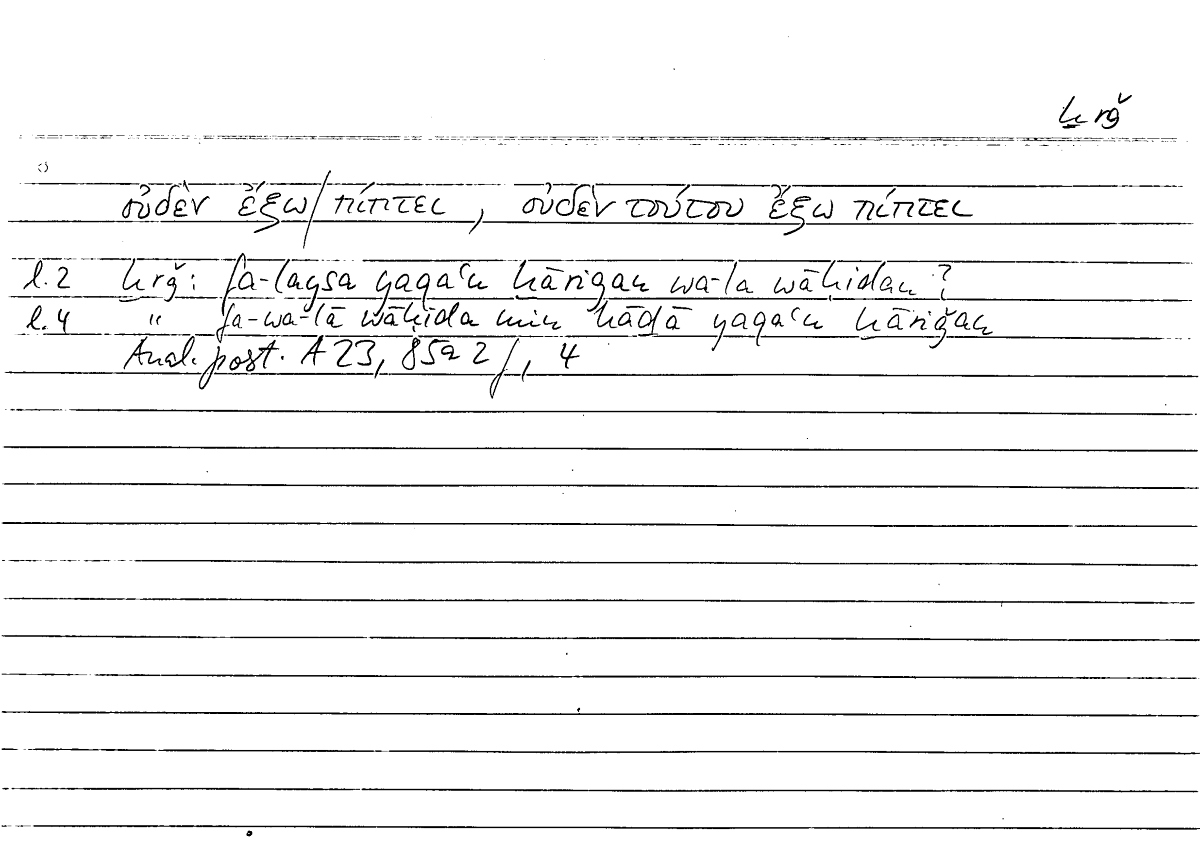 ḫrǧ
οὐδὲν ἔξω/πίπτει, οὐδὲν τούτου ἔξω πίπτει
l.2 ḫrǧ: fa-laysa yaqaʿu ḫāriǧan wa-la wāḥidan?
l.4 " fa-wa-lā wāḥida min hāḏā yaqaʿu ḫāriǧan
Anal. post. A 23, 85a2/, 4